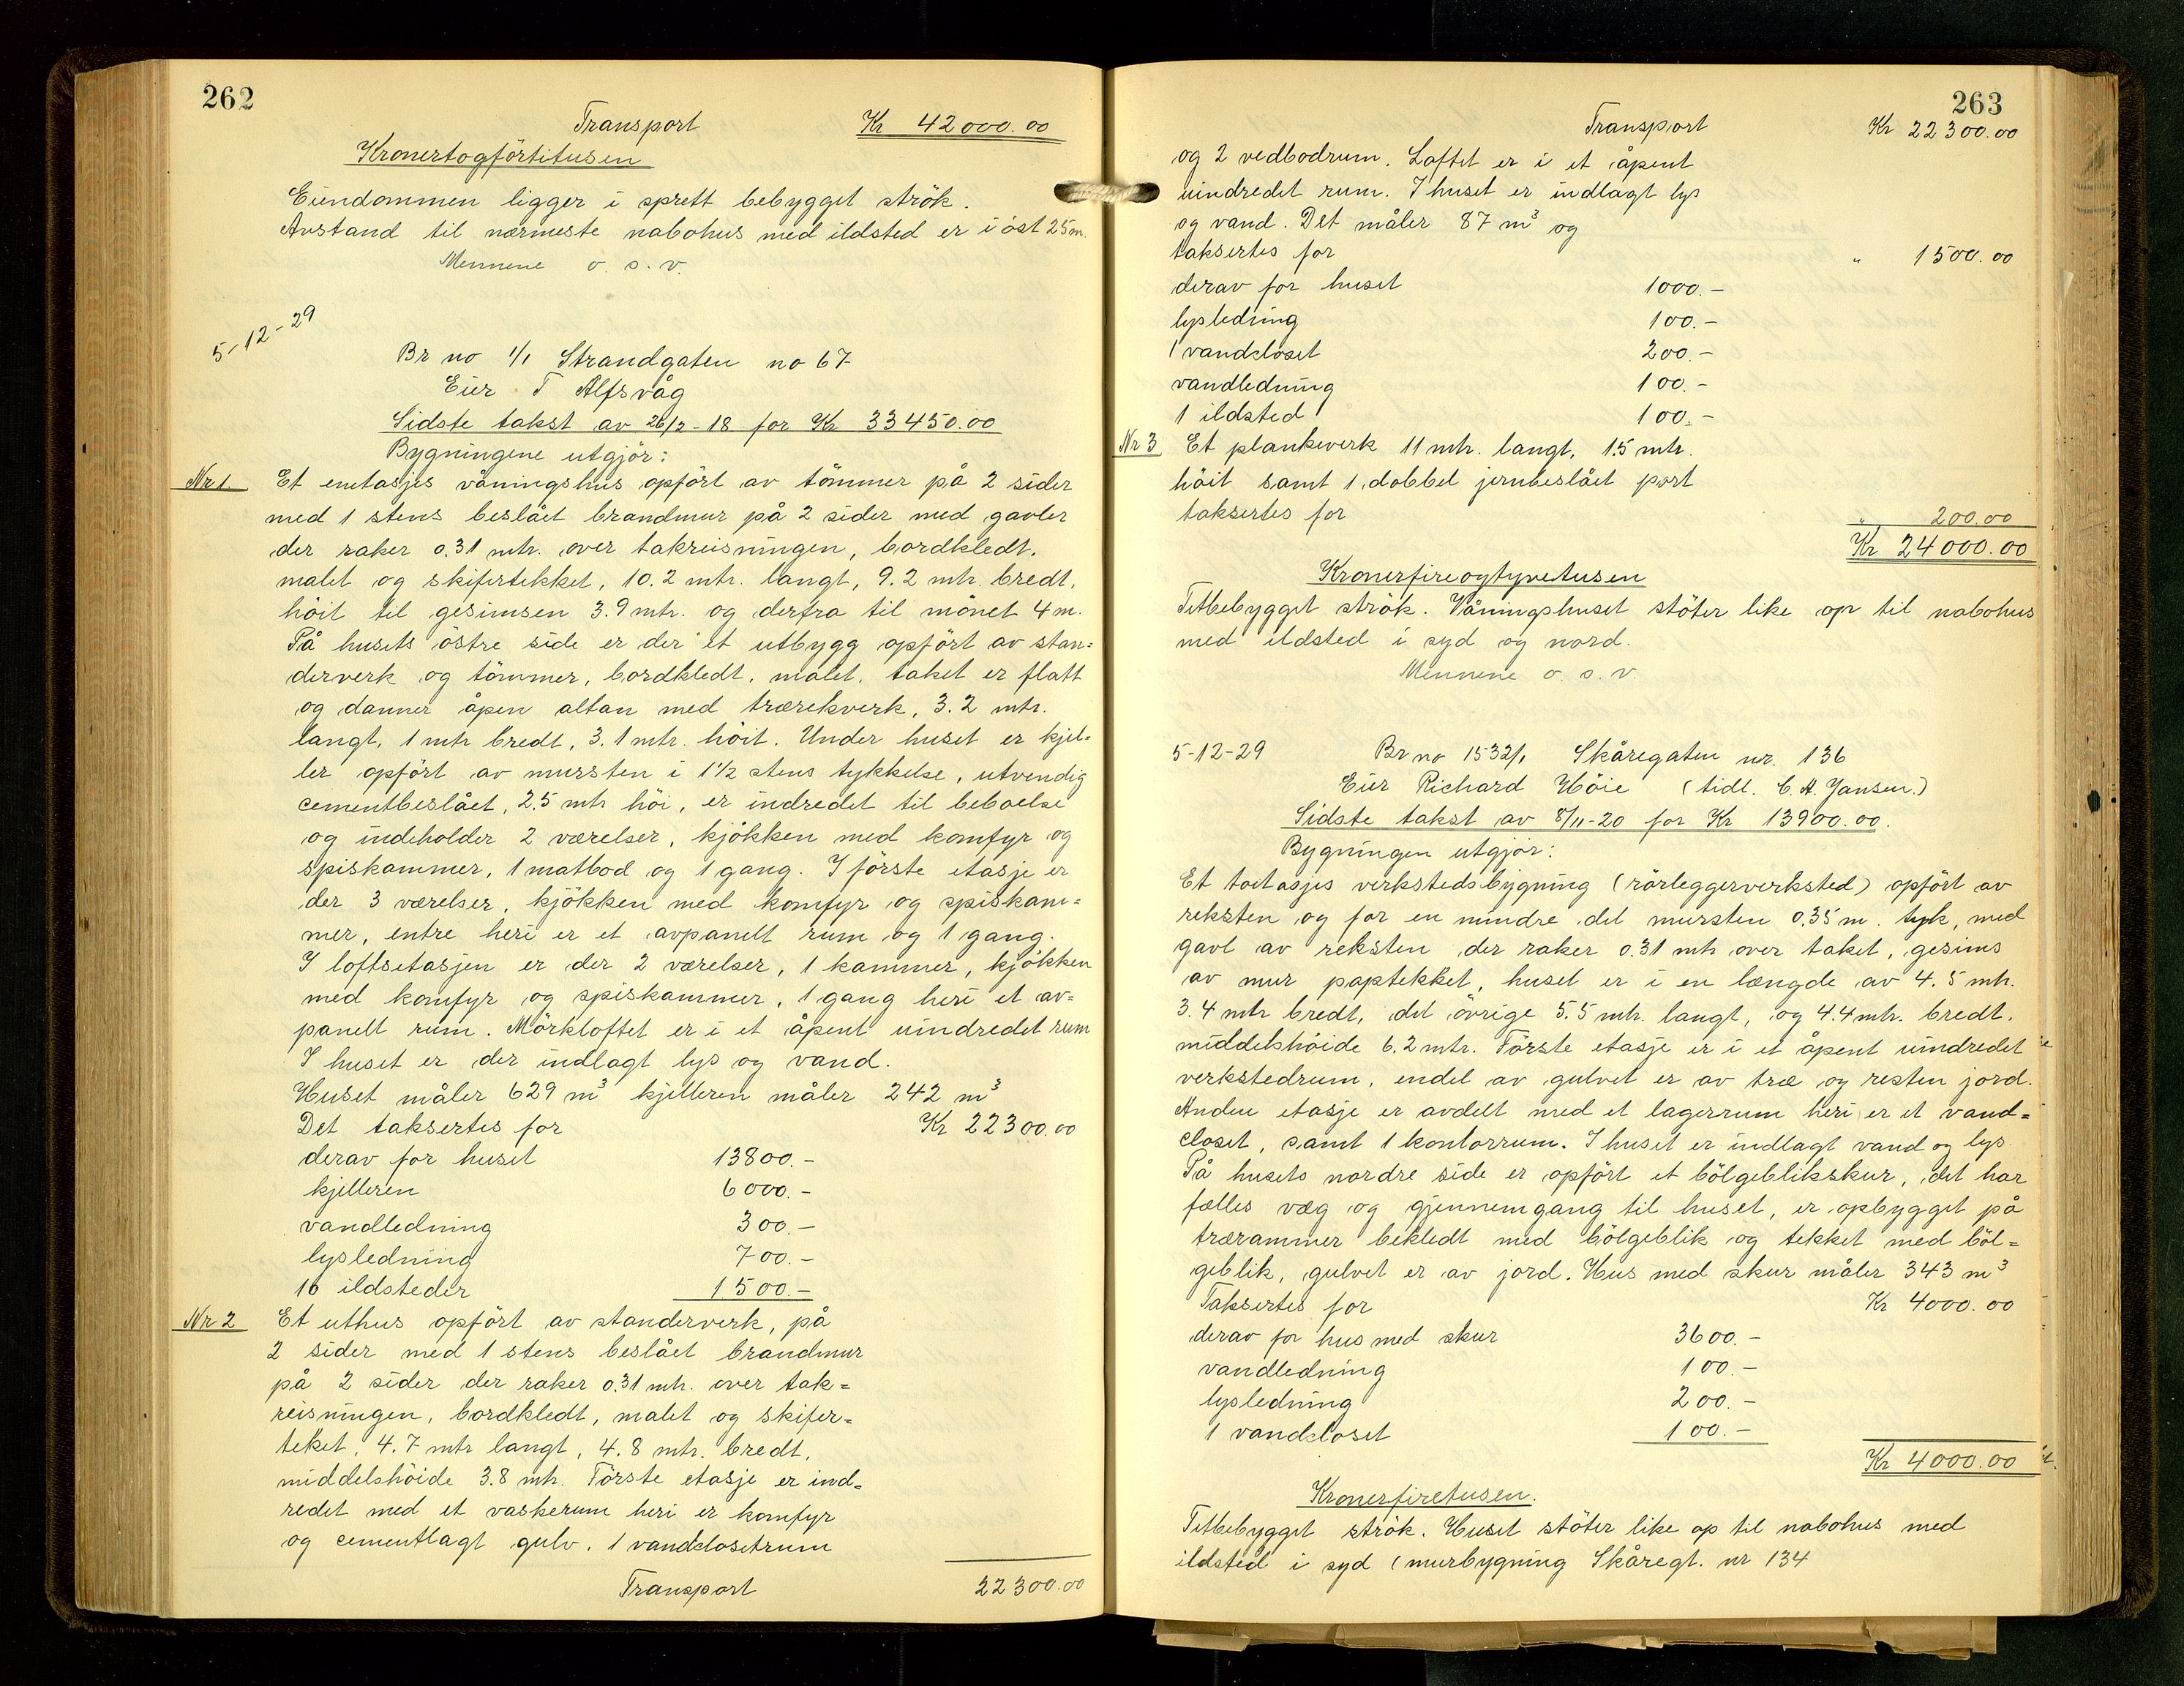 262
Transport Kr 42000.00
Kronertogförtitusen
Eiendommen ligger i sprett bebygget strök.
Avstand til nærmeste nabohus med ildsted er i öst 25 m.
Mennene o. s. v.
5-12-29
Br no 1/1 Strandgaten no 67
Eier T Alfsvåg
Sidste takst av 26/2-18 for Kr 33450.00
Bygningene utgjör:
Nr 1 Et enetasjes våningshus opfört av tömmer på 2 sider
med 1 stens beslået brandmur på 2 sider med gavler
der raker 0.31 mtr. over takreisningen, bordkledt,
malet og skifertekket, 10.2 mtr. langt, 9.2 mtr. bredt,
höit til gesimsen 3.9 mtr. og derfra til mönet 4 m.
På husets östre side er der et utbygg opfört av stan=
derverk og tömmer, bordkledt, malet, taket er flatt
og danner åpen altan med trærekverk, 3.2 mtr.
langt, 1 mtr bredt, 3.1 mtr. höit. Under huset er kjel=
ler opfört av mursten i 1½ stens tykkelse, utvendig
cementbeslået, 2.5 mtr höi, er indredet til beboelse
og indeholder 2 værelser, kjökken med komfyr og
spiskammer, 1 matbod og 1 gang. I förste etasje er
der 3 værelser, kjökken med komfyr og spiskam=
mer, entre heri er et avpanelt rum og 1 gang.
I loftsetasjen er der 2 værelser, 1 kammer, kjökken
med komfyr og spiskammer, 1 gang heri et av=
panelt rum. Mörkloftet er i et åpent uindredet rum
I huset er der indlagt lys og vand.
Huset måler 629 m³ kjelleren måler 242 m³
Det taksertes for Kr 22300.00
derav for huset 13800.-
kjelleren 6000.-
vandledning 300.-
lysledning 700.-
16 ildsteder 1500.-
Nr 2 Et uthus opfört av standerverk, på
2 sider med 1 stens beslået brandmur
på 2 sider der raker 0.31 mtr. over tak=
reisningen, bordkledt, malet og skifer=
teket, 4.7 mtr langt, 4.8 mtr. bredt,
middelshöide 3.8 mtr. Förste etasje er ind=
redet med et vaskerum heri er komfyr
og cementlagt gulv. 1 vandclosetrum
Transport 22300.00
263
Transport Kr 22300.00
og 2 vedbodrum. Loftet er i et åpent
uindredet rum. I huset er indlagt lys
og vand. Det måler 87 m³ og
taksertes for " 1500.00
derav for huset 1000.-
lysledning 100.-
1 vandcloset 200.-
vandledning 100.-
1 ildsted 100.-
Nr 3 Et plankeverk 11 mtr. langt, 1.5 mtr.
höit samt 1 dobbel jernbeslået port
taksertes for " 200.00
Kr 24000.00
Kronerfireogtyvetusen
Tetbebygget strök. Våningshuset stöter like op til nabohus
med ildsted i syd og nord.
Mennene o. s. v.
5-12-29 Br no 1532/1 Skåregaten nr. 136
Eier Richard Höie (tidl. C. A. Jansen.)
Sidste takst av 8/11-20 for Kr 13900.00.
Bygningen utgjör:
Et toetasjes verkstedsbygning (rörleggerverksted) opfört av
reksten og for en mindre del mursten 0.35 m. tyk, med
gavl av reksten der raker 0.31 mtr over taket, gesims
av mur paptekket, huset er i en længde av 4.5 mtr.
3.4 mtr bredt, det övrige 5.5 mtr. langt, og 4.4 mtr. bredt,
middelshöide 6.2 mtr. Förste etasje er i et åpent uindredet
verkstedrum, endel av gulvet er av træ og resten jord.
Anden etasje er avdelt med et lagerrum heri er et vand=
closet, samt 1 kontorrum. I huset er indlagt vand og lys.
På husets nordre side er opfört et bölgeblikskur, det har
fælles væg og gjennemgang til huset, er opbygget på
trærammer bekledt med bölgeblik og tekket med böl=
geblik, gulvet er av jord. Hus med skur måler 343 m³
Taksertes for Kr 4000.00
derav for hus med skur 3600.-
vandledning 100.-
lysledning 200.-
1 vandcloset 100.-
Kr 4000.00
Kronerfiretusen.
Tetbebygget strök. Huset stöter like op til nabohus med
ildsted i syd (murbygning Skåregt. nr 134